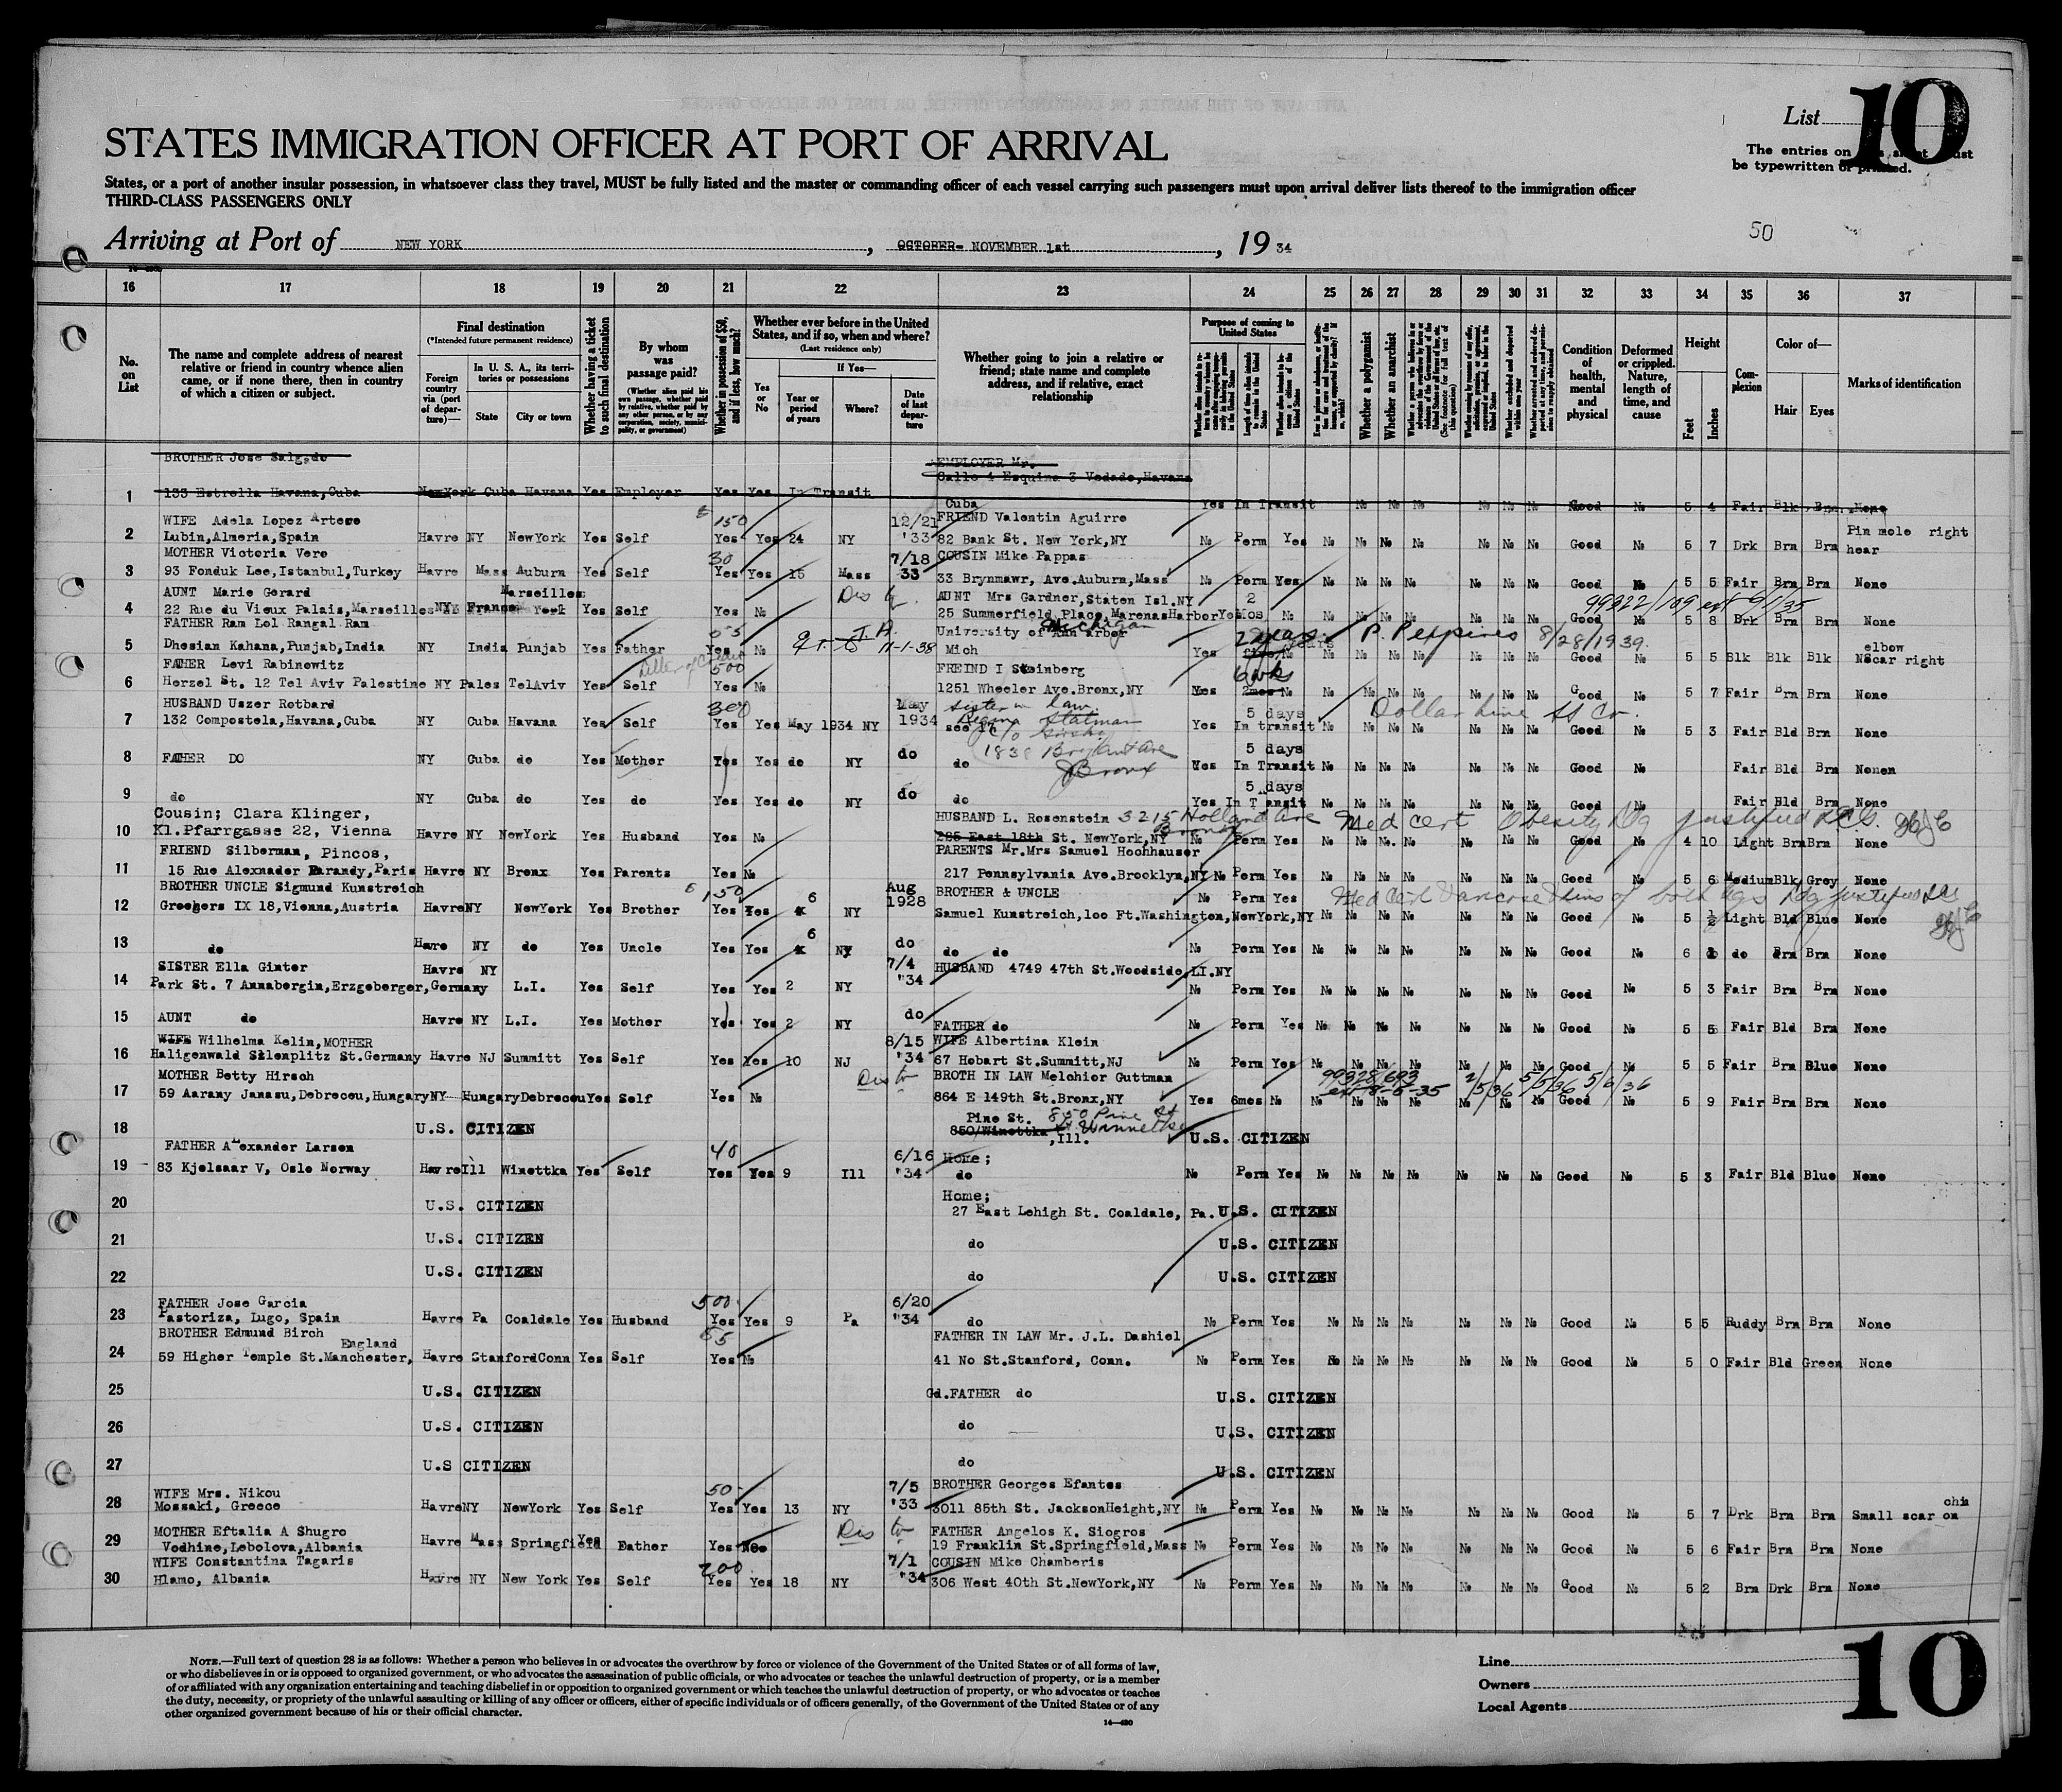 List 10
The entries on this sheet must
be typewritten or printed.
STATES IMMIGRATION OFFICER AT PORT OF ARRIVAL
States, or a port of another insular possession, in whatsoever class they travel, MUST be fully listed and the master or commanding officer of each vessel carrying such passengers must upon arrival deliver lists thereof to the immigration officer
THIRD-CLASS PASSENGERS ONLY
50
Arriving at Port of NEW YORK, OCTOBER- NOVEMBER 1st, 19 34
16 17 18 19 20 21 22 23 24 25 26 27 28 29 30 31 32 33 34 35 36 37
No. on List
The name and complete address of nearest relative or friend in country whence alien came, or if none there, then in country of which a citizen or subject.
Final destination
(*Intended future permanent residence)
Foreign country via (port of departure)—
In U. S. A., its territories or possessions
State City or town
Whether having a ticket to such final destination
By whom was passage paid?
(Whether alien paid his own passage, whether paid by relative, whether paid by any other person, or by any corporation, society, municipality, or government)
Whether in possession of $50, and if less, how much?
Whether ever before in the United States, and if so, when and where?
(Last residence only)
Yes or No
If Yes—
Year or period of years Where? Date of last departure
Whether going to join a relative or friend; state name and complete address, and if relative, exact relationship
Purpose of coming to United States
Length of time alien intends to remain in the United States
Whether a polygamist
Whether an anarchist
Condition of health, mental and physical
Deformed or crippled. Nature, length of time, and cause
Height
Feet Inches
Complexion
Color of—
Hair Eyes
Marks of identification
BROTHER Jose Salgado EMPLOYER Mr.
Calle 4 Esquina 3 Vedado, Havana
1 133 Estrella Havana, Cuba NewYork Cuba Havana Yes Employer Yes Yes In Transit Cuba Yes In Transit No No No No No No Good No 5 4 Fair Blk Brn None
WIFE Adela Lopez Artese 150 12/21 FRIEND Valentin Aguirre Pin mole right
2 Lubin, Almeria, Spain Havre NY NewYork Yes Self Yes Yes 24 NY '33 82 Bank St. New York, NY No Perm Yes No No No No No No No Good No 5 7 Drk Brn Brn hear
MOTHER Victoria Vere 30 7/18 COUSIN Mike Pappas
3 93 Fonduk Lee, Istanbul, Turkey Havre Mass Auburn Yes Self Yes Yes 15 Mass 33 33 Brynmawr, Ave. Auburn, Mass No Perm Yes No No No No No No No Good No 5 5 Fair Brn Brn None
AUNT Marie Gerard Marseilles AUNT Mrs Gardner, Staten Isl. NY 2 99322/109 ext 6/1/35
4 22 Rue du Vieux Palais, Marseilles NY France Yes Self Yes No 25 Summerfield Place, Marenas Harbor Yes Mos No No No No No No No 5 8 Brk Brn Brn None
FATHER Ram Lol Rangal Ram University of Michigan 2 years P. Perpines 8/28/1939.
5 Dhesian Kahana, Punjab, India NY India Punjab Yes Father Yes No 11-1-38 Ann arbor Mich Yes No No No No No No No Good No 5 5 Blk Blk Blk Scar right elbow
FATHER Levi Rabinowitz Letter of Credit 500 FREIND I Steinberg 6 wks
6 Herzel St. 12 Tel Aviv Palestine NY Pales TelAviv Yes Self Yes No 1251 Wheeler Ave. Bronx, NY Yes 2mos No No No No No No No No Good No 5 7 Fair Brn Brn None
HUSBAND Uszer Rotbard 300 May sister in law 5 days Dollar Line SS Co.
7 132 Compostela, Havana, Cuba NY Cuba Havana Yes Self Yes Yes May 1934 NY 1934 Regina Statman Yes In transit No No No No No No No Good No 5 3 Fair Bld Brn None
1838 Bryant Ave 5 days
8 FATHER DO NY Cuba do Yes Mother Yes Yes do NY do do Bronx Yes In Transit No No No No No No No Good No Fair Bld Brn None
5 days
9 do NY Cuba do Yes do Yes Yes do NY do do Yes In Transit No No No No No No No Good No Fair Bld Brn None
Cousin; Clara Klinger, HUSBAND L. Rosenstein 3215 Holland Ave Bronx Med Cert Obesity Dg justified
10 Kl. Pfarrgasse 22, Vienna Havre NY NewYork Yes Husband Yes No 285 East 18th St. NewYork, NY No Perm Yes No No No No No No No Good No 4 10 Light Brn Brn None
FRIEND Silberman, Pincos, PARENTS Mr. Mrs Samuel Hochhauser
11 15 Rue Alexnader Parandy, Paris Havre NY Bronx Yes Parents Yes No 217 Pennsylvania Ave. Brooklyn, NY No Perm Yes No No No No No No No Good No 5 6 Medium Blk Grey None
BROTHER UNCLE Sigmund Kunstreich 150 Aug BROTHER & UNCLE Med Cert Varicose Veins of both legs Dg justified
12 Greehers IX 18, Vienna, Austria Havre NY NewYork Yes Brother Yes Yes 6 NY 1928 Samuel Kunstreich, 100 Ft. Washington, NewYork, NY No Perm Yes No No No No No No No Good No 5 ½ Light Bld Blue None
13 do Havre NY do Yes Uncle Yes Yes 6 NY do do do No Perm Yes No No No No No No No Good No 6 do Brn Brn None
SISTER Ella Ginter 7/4 HUSBAND 4749 47th St. Woodside, LI. NY
14 Park St. 7 Annabergin, Erzgeberger, Germany Havre NY L.I. Yes Self Yes Yes 2 NY '34 No Perm Yes No No No No No No No Good No 5 3 Fair Brn Brn None
15 AUNT do Havre NY L.I. Yes Mother Yes Yes 2 NY do FATHER do No Perm Yes No No No No No No No Good No 5 5 Fair Bld Brn None
WIFE Wilhelma Kelin, MOTHER 8/15 WIFE Albertina Klein
16 Haligenwald Sllenplitz St. Germany Havre NJ Summitt Yes Self Yes Yes 10 NJ '34 67 Hobart St. Summitt, NJ No Perm Yes No No No No No No No Good No 5 5 Fair Brn Blue None
MOTHER Betty Hirsch BROTH IN LAW Melchior Guttman 99328/693 2/5/36 5/5/36 5/6/36
17 59 Aarany Janasu, Debreceu, Hungary NY Hungary Debreceu Yes Self Yes No 864 E 149th St. Bronx, NY Yes 6mos No No No No No No No No Good No 5 9 Fair Brn Brn None
Pine St. 850 Pine St
18 U.S. CITIZEN 850/Winettka Winnetka, Ill. U.S. CITIZEN
FATHER Alexander Larsen 40 6/16 Home;
19 83 Kjelsaar V, Oslo Norway Havre Ill Winettka Yes Self Yes Yes 9 Ill '34 do No Perm Yes No No No No No No No Good No 5 3 Fair Bld Blue None
Home;
20 U.S. CITIZEN 27 East Lehigh St. Coaldale, Pa. U.S. CITIZEN
21 U.S. CITIZEN do U.S. CITIZEN
22 U.S. CITIZEN do U.S. CITIZEN
FATHER Jose Garcia 500 6/20
23 Pastoriza, Lugo, Spain Havre Pa Coaldale Yes Husband Yes Yes 9 Pa '34 do No Perm Yes No No No No No No No Good No 5 5 Ruddy Brn Brn None
BROTHER Edmund Birch England 55 FATHER IN LAW Mr. J.L. Dashiel
24 59 Higher Temple St. Manchester, Havre Stanford Conn Yes Self Yes No 41 No St. Stanford, Conn. No Perm Yes No No No No No No No Good No 5 0 Fair Bld Green None
25 U.S. CITIZEN Gd. FATHER do U.S. CITIZEN
26 U.S. CITIZEN do U.S. CITIZEN
27 U.S CITIZEN do U.S. CITIZEN
WIFE Mrs. Nikou 50 7/5 BROTHER Georges Efantes chin
28 Mossaki, Greece Havre NY NewYork Yes Self Yes Yes 13 NY '33 3011 85th St. JacksonHeight, NY No Perm Yes No No No No No No No Good No 5 7 Drk Brn Brn Small scar on
MOTHER Eftalia A Shugro FATHER Angelos K. Siogros
29 Vodhine, Lebolova, Albania Havre Mass Springfield Yes Father Yes No 19 Franklin St. Springfield, Mass No Perm Yes No No No No No No No Good No 5 6 Fair Brn Brn None
WIFE Constantina Tagaris 200 7/1 COUSIN Mike Chamberis
30 Hlamo, Albania Havre NY New York Yes Self Yes Yes 18 NY '34 306 West 40th St. NewYork, NY No Perm Yes No No No No No No No Good No 5 2 Brn Drk Brn None
NOTE.—Full text of question 28 is as follows: Whether a person who believes in or advocates the overthrow by force or violence of the Government of the United States or of all forms of law,
or who disbelieves in or is opposed to organized government, or who advocates the assassination of public officials, or who advocates or teaches the unlawful destruction of property, or is a member
of or affiliated with any organization entertaining and teaching disbelief in or opposition to organized government or which teaches the unlawful destruction of property, or who advocates or teaches
the duty, necessity, or propriety of the unlawful assaulting or killing of any officer or officers, either of specific individuals or of officers generally, of the Government of the United States or of any
other organized government because of his or their official character.
14—480
Line
Owners
Local Agents
10